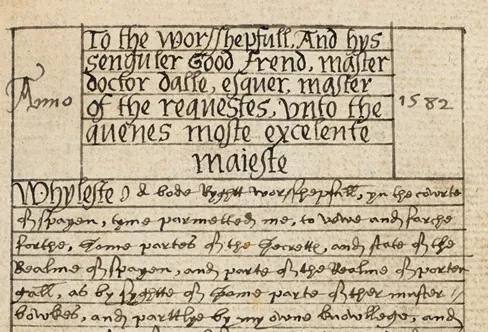 To the worsshepfull, And hys
senguler Good frend, master
doctor dalle, esquer, master
Anno of the requestes, vnto the 1582
quenes moste excelente
maieste
Whyleste I d bode Ryghtt worsshepfull, yn the courte
of spayen, tyme parmetted me, to vewe and sarche
forthe, Some partes of the Secrette, and state of the
Realme of spayen, and parte of the Realme of porten
gall, as by syghtte of Some parte of ther muster
bowkes, and parttlye by my owne knowllege, and